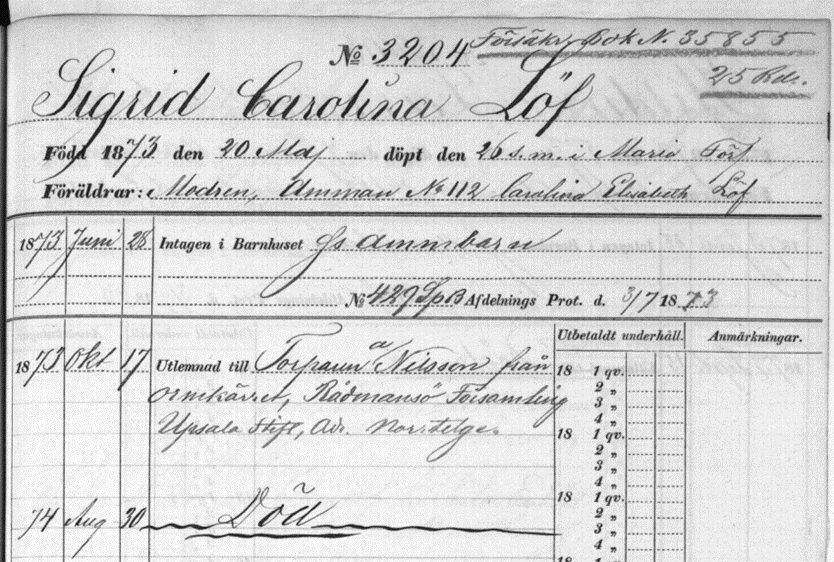 № 3204 Försäkr. bok N. 35855
25 Rdr.
Sigrid Carolina Löf
Född 1873 den 20 Maj döpt den 26 s.m. i Maria Förs
Föräldrar: Modren, Amman № 112 Carolina Elisabeth Löf
1873 Juni 28 Intagen i Barnhuset Gs ammbarn
№ 429 SpB Afdelnings Prot. d. 3/7 1873
Utbetaldt underhåll. Anmärkningar.
1873 Okt 17 Utlemnad till Torparen a/ Nilsson från
Ornkärret, Rådmansö Församling
Upsala Stift, Adr. Norrtelge.
18 1 qv.
2 „
3 „
4 „
18 1 qv.
2 „
3 „
4 „
18 1 qv.
74 Aug 30 Död
2 „
3 „
4 „
18 1 qv.